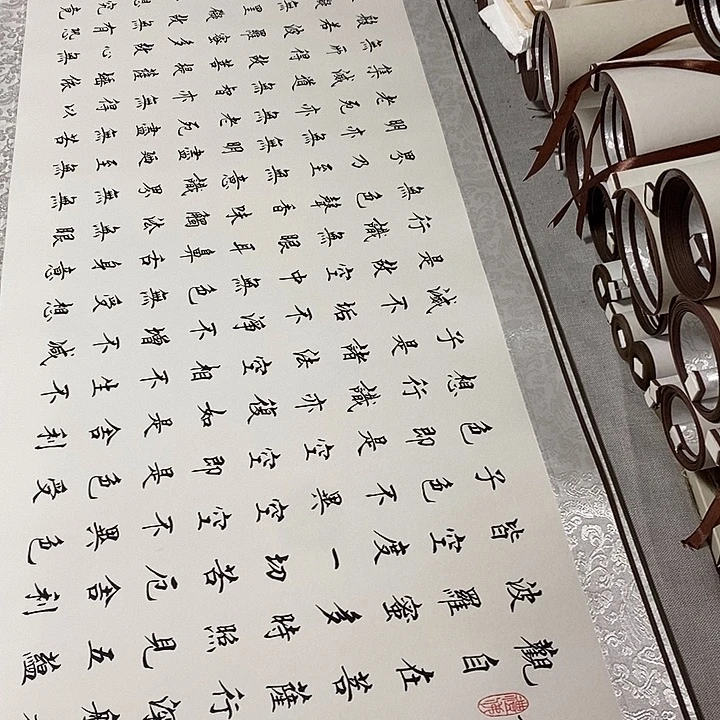 觀自在菩薩行深般
波羅蜜多時照見五蘊
皆空度一切苦厄舍利
子色不異空空不異色
色即是空空即是色受
想行識亦復如是舍利
子是諸法空相不生不
滅不垢不淨不增不減
是故空中無色無受想
行識無眼耳鼻舌身意
無色聲香味觸法無眼
界乃至無意識界無無
明亦無無明盡乃至無
老死亦無老死盡無苦
集滅道無智亦無得以
無所得故菩提薩埵依
般若波羅蜜多故心無
故無有恐
想究竟